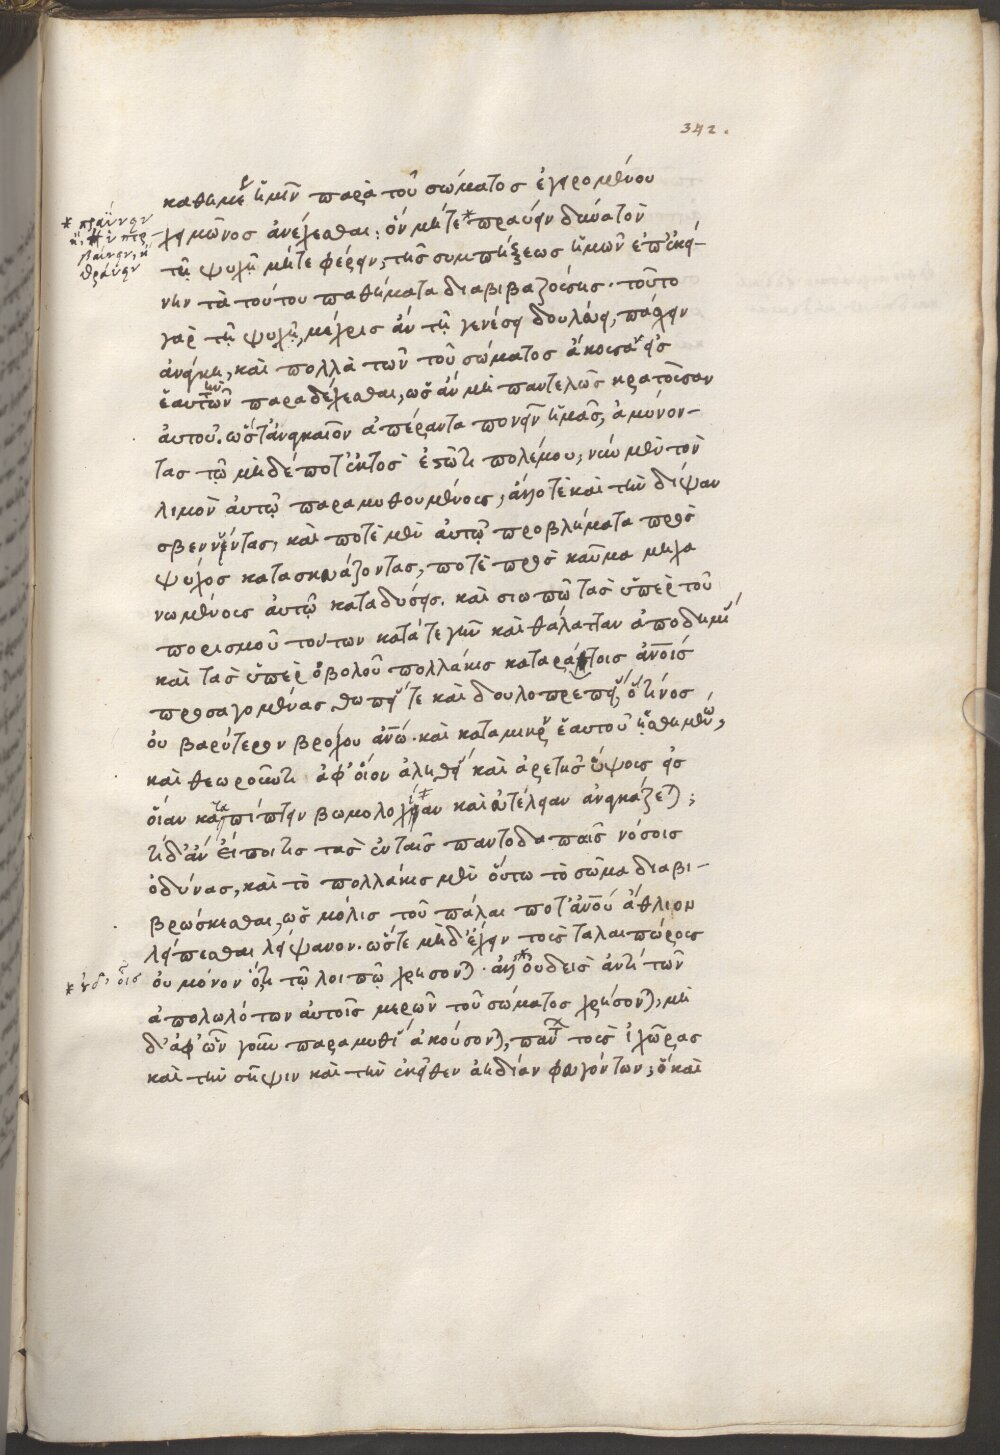 342.
καθημε ἡμῖν παρὰ τοῦ σώματος ἐγειρομένου
χειμῶνος ἀνέχεσθαι; ὃν μήτε * πραΰειν δυνατὸν
τῇ ψυχῇ μήτε φέρειν, τῆς συμπήξεως ἡμῶν ἐπ' ἐκεί-
νην τὰ τούτου παθήματα διαβιβαζούσης. τοῦτο
γὰρ τῇ ψυχῇ, μέχρις ἂν τῇ γενέσει δουλεύῃ, πάσχειν
ἀνάγκη, καὶ πολλὰ τῶν τοῦ σώματος ἀκούσαν εἰς
ἑαυτὴν παραδέχεσθαι, ὡς ἂν μὴ παντελῶς κρατοῦσαν
αὐτοῦ. ὥστ' ἀναγκαῖον ἀπέραντα πονεῖν ἡμᾶς, ἀμύνον-
τας τῷ μηδέποτ' ἐκτὸς ἑστῶτι πολέμου, νῦν μὲν τὸν
λιμὸν αὐτῷ παραμυθουμένους, ἄλλοτε καὶ τὴν δίψαν
σβεννύντας, καὶ ποτὲ μὲν αὐτῷ προβλήματα πρὸς
ψύχος κατασκευάζοντας, ποτὲ πρὸς καῦμα μηχα
νωμένους αὐτῷ καταδύσεις. καὶ σιωπῶ τὰς ὑπὲρ τοῦ
πορισμοῦ τούτων κατά τε γῆν καὶ θάλατταν ἀποδημί
καὶ τὰς ὑπὲρ ὀβολοῦ πολλάκις καταράτοις ἀνοις
προσαγομένας θωπείας τε καὶ δουλοπρεπείας, οὗ τίνος
οὐ βαρύτερον βρόχου ἀνω. καὶ καταμικρὸν ἑαυτοῦ ᾐσθημένω,
καὶ θεωροῦντι ἀφ' οἵου ἀληθείας καὶ ἀρετῆς ὕψους εἰς
οἵαν καταπίπτειν βωμολοχίαν * καὶ εὐτέλειαν ἀναγκάζεται;
τί δ' ἂν εἴποι τις τὰς ἐν ταῖς παντοδαπαῖς νόσοις
ὀδύνας, καὶ τὸ πολλάκις μὲν οὕτω τὸ σῶμα διαβι-
βρώσκεσθαι, ὡς μόλις τοῦ πάλαι ποτ' ἀνου ἄθλιον
λείπεσθαι λείψανον. ὥστε μηδ' ἔχειν τοὺς ταλαιπώρους
οὐ μόνον ὅτι τῷ λοιπῷ χρήσονται. ἀλλ' * οὐδεὶς ἀντὶ τῶν
ἀπολωλότων αὐτοῖς μερῶν τοῦ σώματος χρήσονται, μη
δ' ἀφ' ὧν γοῦν παραμυθίας ἀκούσονται, πάντων τοὺς ἰχῶρας
καὶ τὴν σῆψιν καὶ τὴν ἐκεῖθεν ἀηδίαν φευγόντων; ὃ καὶ
* πραΰνειν
ἢ,
βαίνειν, ἢ
θραύειν
* οὐδ' οἷς